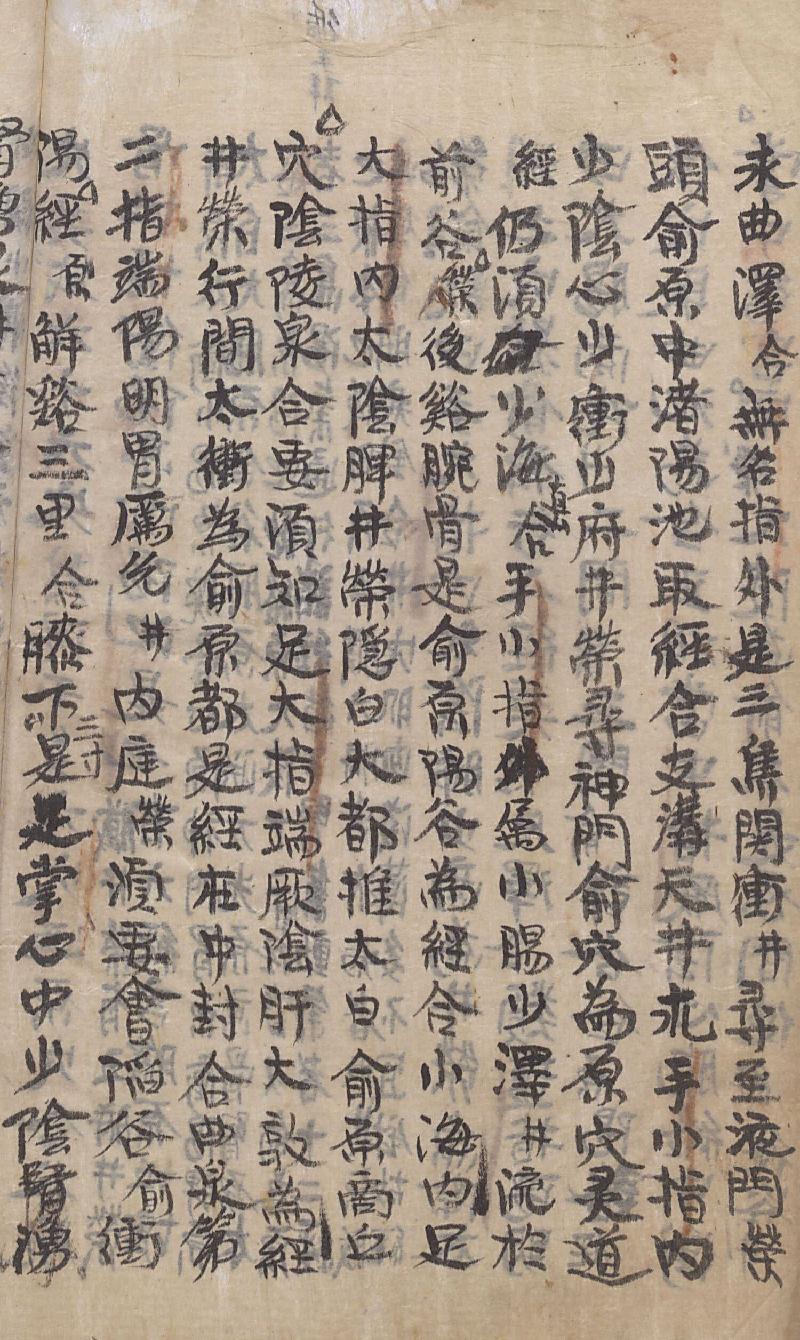 求曲澤合無名指外是三焦関衝井尋至液門荣
頭俞原中渚陽池取經合支溝天井求手小指内
少陰心少衝出府井荣尋神門俞穴為原穴灵道
經仍須少海合直手小指外属小腸少澤井流於
前谷荣後谿腕骨是俞原陽谷為經合小海内足
大指内太陰脾井荣隠白大都推太白俞原商丘
穴陰陵泉合要須知足大指端厥陰肝大敦為經
井荣行間太衝為俞原都是經在中封合曲泉第
二指端陽明胃厲兊井内庭荣須要會陷谷俞衝
陽經原解谿三里合膝下三寸是足掌心中少陰腎湧